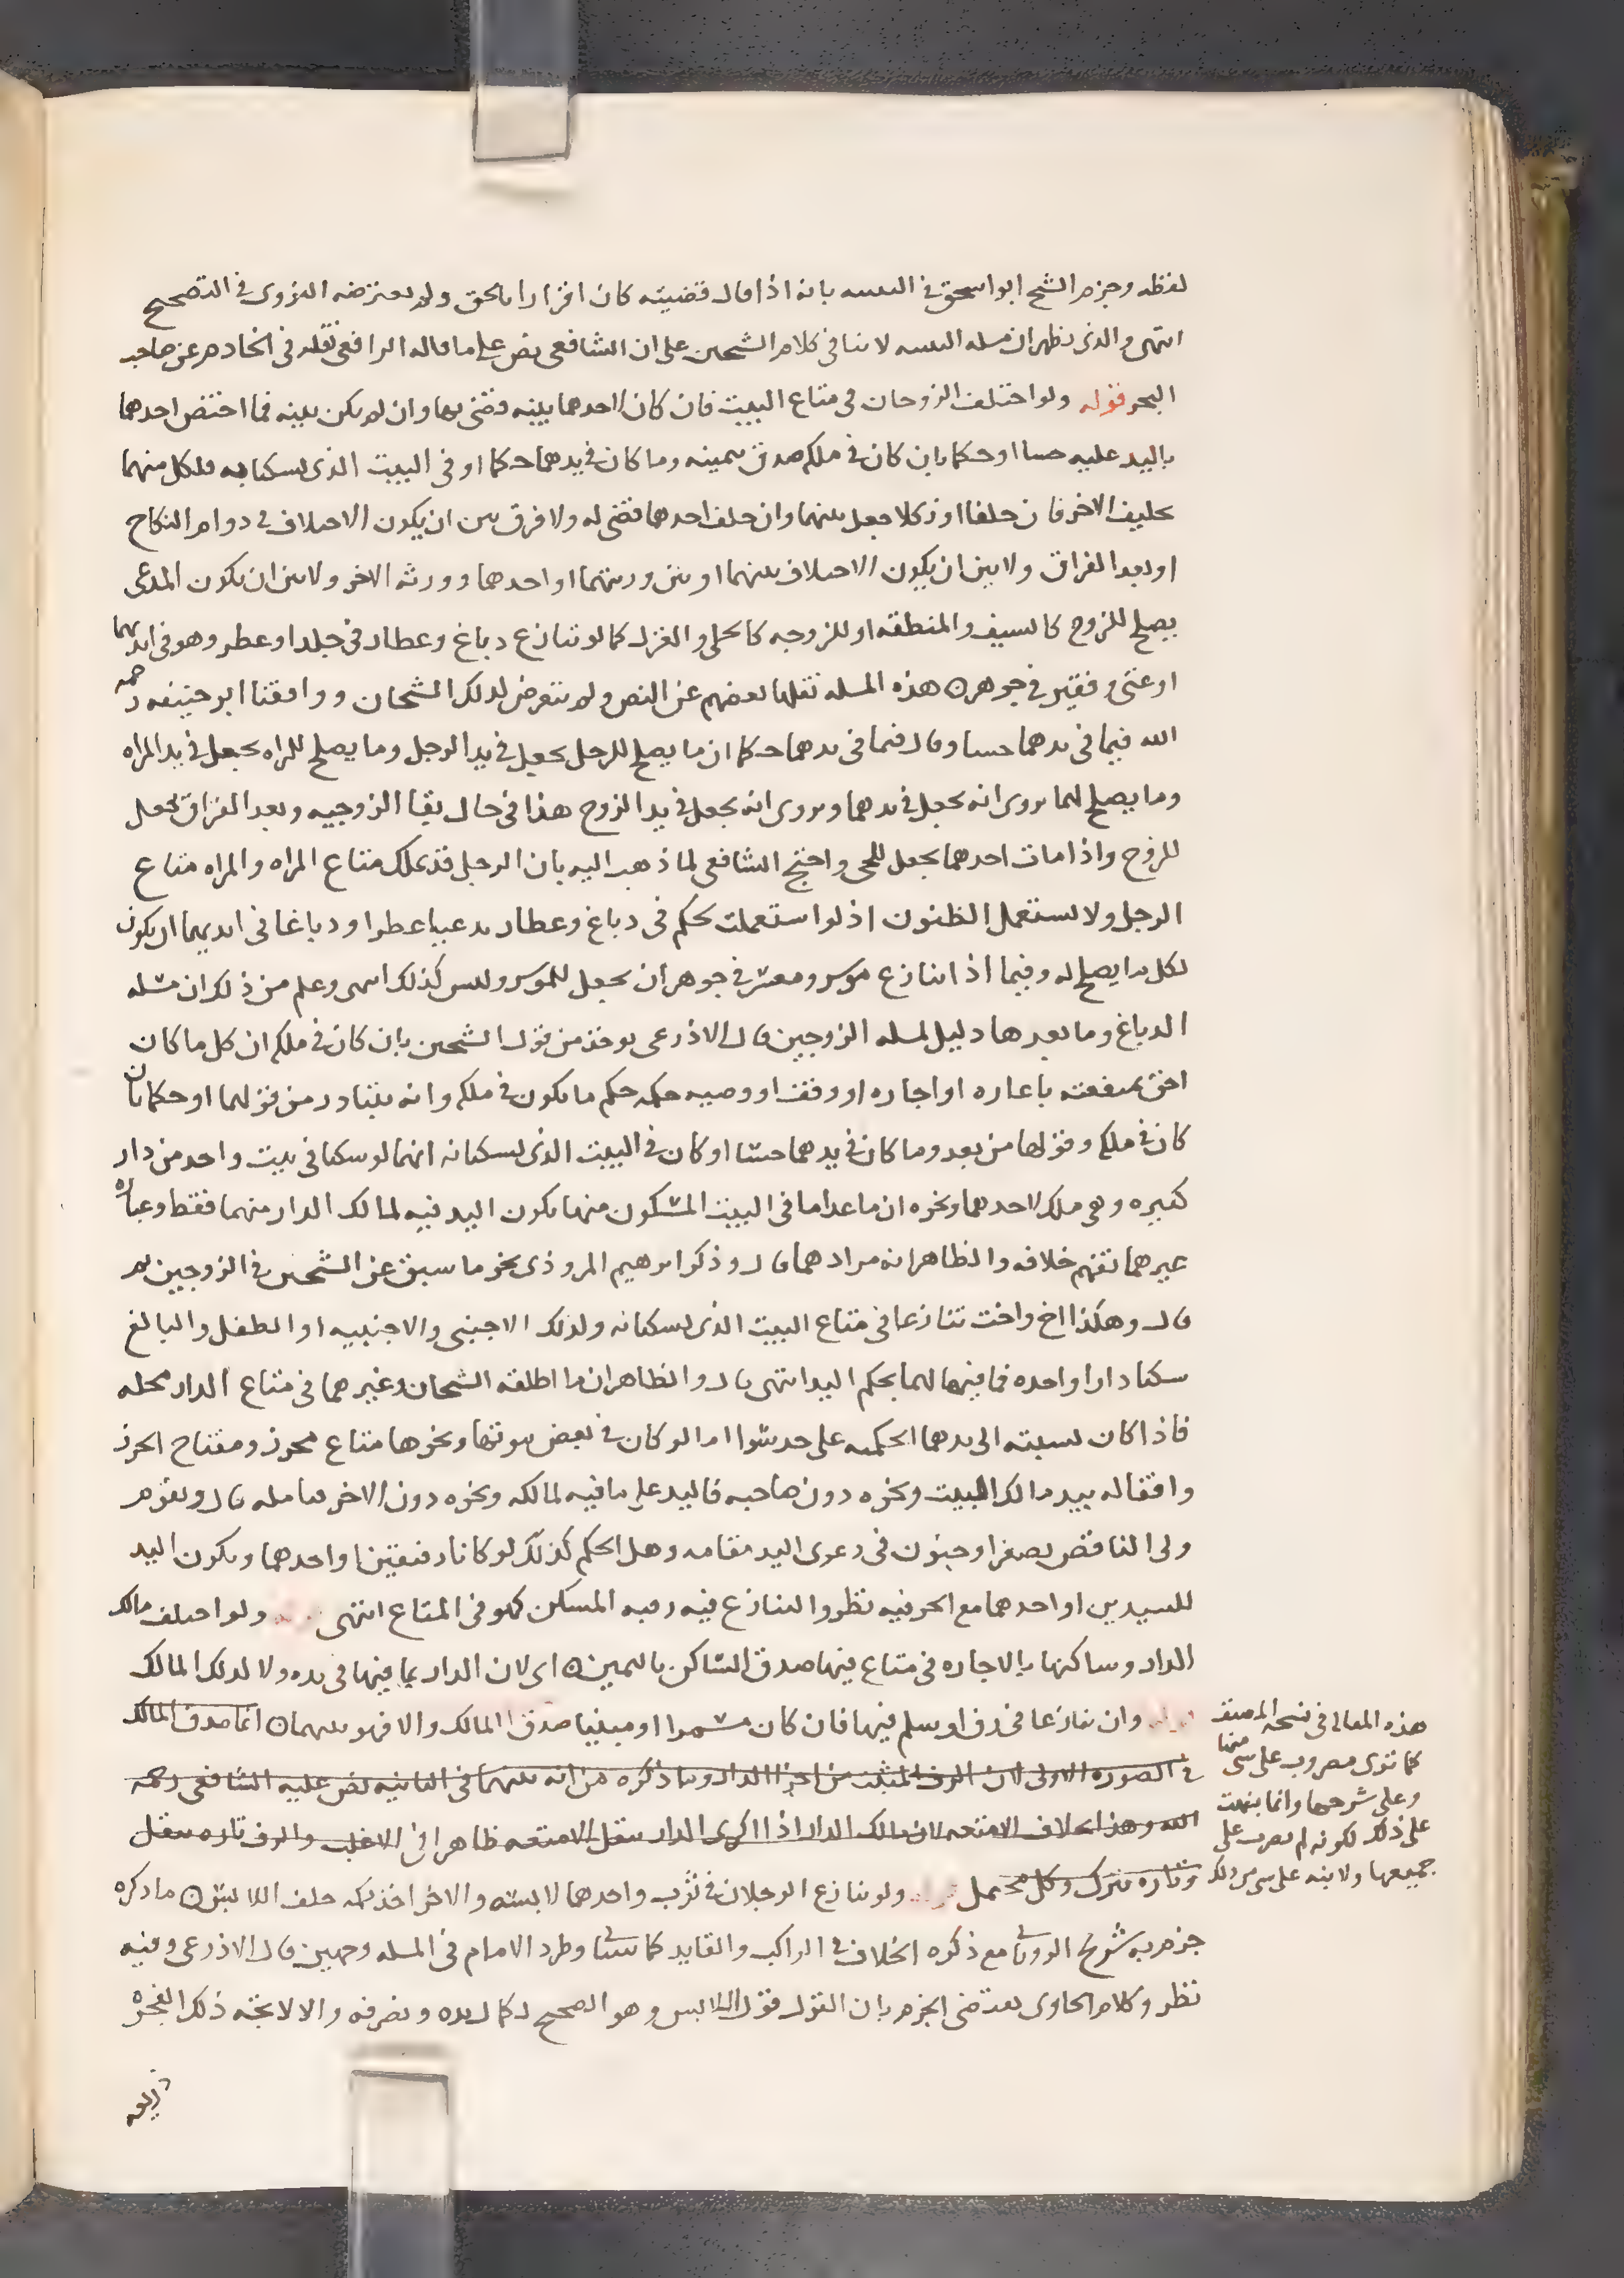 لفظه وجزم الشيخ ابو اسحق في التنبيه بانه اذا قال قضيته كان اقرارا بالحق ولم يعترضه النووى في التصحيح
انتهى والذى يظهر ان مسله التنبيه لا تنافى كلام الشيخين على ان الشافعي نص على ما قاله الرافعي نقله في الخادم عن صاحب
البحر قوله ولو اختلف الزوجان في متاع البيت فان كان لاحدهما بينه قضى بها وان لم يكن بينه فما اختص احدهما
باليد عليه حسا او حكما بان كان في ملكه صدق بيمينه وما كان في يدهما حكما او في البيت الذى يسكنانه فلكل منهما
تحليف الاخر فان حلفا او نكلا جعل بينهما وان حلف احدهما قضى له ولا فرق بين ان يكون الاختلاف في دوام النكاح
او بعد الفراق ولا بين ان يكون الاختلاف بينهما او بين ورثتهما او احدهما وورثه الاخر ولا بين ان يكون المدعى
يصلح للزوج كالسيف والمنطقه او للزوجه كالحلى والغزل كما لو تنازع دباغ وعطار في جلد او عطر وهو في ايديهما
او غنى وفقير في جوهر هذه المسله نقلها بعضهم عن النص ولم يتعرض لذلك الشيخان ووافقنا ابو حنيفه رحمه
الله فيما في يدهما حسا وقال فيما في يدهما حكما ان ما يصلح للرجل يجعل في يد الرجل وما يصلح للمراه يجعل في يد المراه
وما يصلح لهما يروى انه يجعل في يدهما ويروى انه يجعل في يد الزوج هذا في حال بقا الزوجيه وبعد الفراق يجعل
للزوج واذا مات احدهما يجعل للحى واحتج الشافعي لما ذهب اليه بان الرجل قد يملك متاع المراه والمراه متاع
الرجل ولا تستعمل الظنون اذ لو استعملت لحكم في دباغ وعطار يدعيا عطرا ودباغا في ايديهما ان يكون
لكل ما يصلح له وفيما اذا تنازع موسر ومعسر في جوهر ان يجعل للموسر وليس كذلك انتهى وعلم من ذلك ان مسله
الدباغ وما بعدها دليل لمسله الزوجين قال الاذرعى يوخذ من قول الشيخين بان كان في ملكه ان كل ما كان
احق بمنفعته باعاره او اجاره او وقف او وصيه حكمه حكم ما يكون في ملكه وانه يتبادر من قولهما او حكما بان
كان في ملكه وقولهما من بعد وما كان في يدهما حسا او كان في البيت الذى يسكنانه انهما لو سكنا في بيت واحد من دار
كبيره وهي ملك لاحدهما ونحوه ان ما عدا ما في البيت المسكون منها يكون اليد فيه لمالك الدار منهما فقط وعباره
غيرهما تفهم خلافه والظاهر انه مرادهما قال وذكر ابرهيم المروذى نحو ما سبق عن الشيخين في الزوجين ثم
قال وهكذا اخ واخت تنازعا في متاع البيت الذى يسكنانه وكذلك الاجنبى والاجنبيه او الطفل والبالغ
سكنا دارا واحده فما فيها لهما بحكم اليد انتهى قال والظاهر ان ما اطلقه الشيخان وغيرهما في متاع الدار محله
فاذا كان نسبته الى يدهما الحكميه على حد سوا اما لو كان في بعض بيوتها ونحوها متاع محرز ومفتاح الحرز
واقفاله بيد مالك البيت ونحوه دون صاحبه فاليد على ما فيه لمالكه ونحوه دون الاخر فتامله قال ويقوم
ولى الناقص بصغر او جنون في دعوى اليد مقامه وهل الحكم كذلك لو كانا رقيقين او احدهما ويكون اليد
للسيدين او احدهما مع الحر فيه نظر والتنازع فيه رقبه المسكن كهو في المتاع انتهى ولو اختلف مالك
الدار وساكنها بالاجاره في متاع فيها صدق الساكن باليمين اى لان الدار بما فيها في يده ولا كذلك المالك
وان تنازعا في رف او سلم فيها فان كان مسمرا او مبنيا صدق المالك والا فهو بينهما انما صدق المالك
في الصوره الاولى لان الرف المثبت من اجزا الدار وما ذكره من انه بينهما في الثانيه نص عليه الشافعي رحمه
الله وهذا بخلاف الامتعه لان مالك الدار اذا اكرى الدار ينقل الامتعه ظاهرا في الاغلب والرف تاره ينقل
وتاره يترك وكل محتمل ولو تنازع الرجلان في ثوب واحدهما لابسه والاخر اخذ بكمه حلف اللابس ما ذكره
جزم به شريح الرويانى مع ذكره الخلاف في الراكب والقايد كما سياتي وطرد الامام في المسله وجهين قال الاذرعى وفيه
نظر وكلام الحاوى يقتضى الجزم بان القول قول اللابس وهو الصحيح لكمال يده وتصرفه والا لاتخذ ذلك الفجره
هذه المعالى في نسخه المصنف
كما ترى مضروب على شى منها
وعلى شرحها وانما نبهت
على ذلك لكونه لم يضرب على
جميعها ولا نبه على شى من ذلك